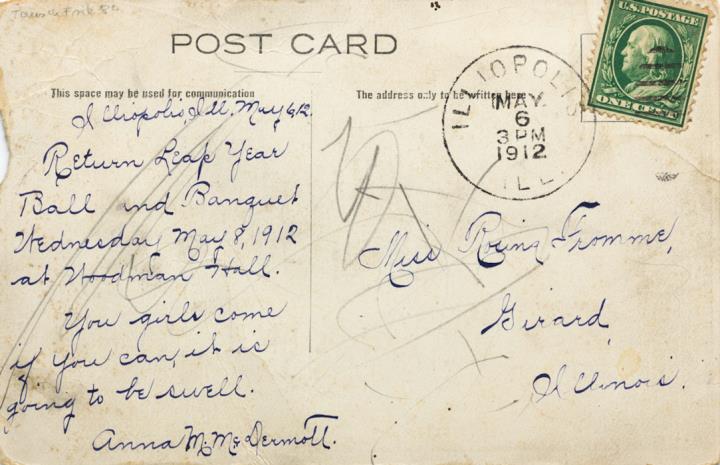 POST CARD
This space may be used for communication
The address only to be written here
U.S. POSTAGE
ONE CENT
ILLIOPOLIS
MAY
6
3 PM
1912
ILL.
Illiopolis, Ill, May 6, 12.
Return Leap Year
Ball and Banquet
Wednesday May 8, 1912
at Woodman Hall.
You girls come
if you can, it is
going to be swell.
Anna M. McDermott.
Miss Fromme,
Girard,
Illinois.